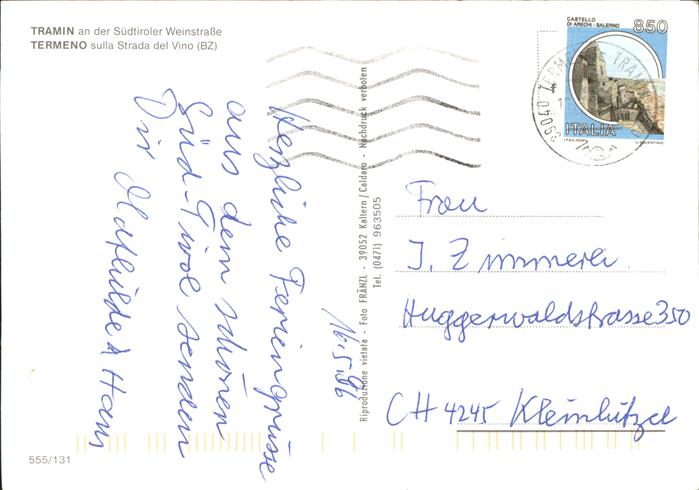 TRAMIN an der Südtiroler Weinstraße
TERMENO sulla Strada del Vino (BZ)
CASTELLO
DI ARECHI - SALERNO
850
ITALIA
I.P.Z.S. ROMA
39040 TERMENO TRAMIN
16.5.96
Herzliche Feriengrüsse
aus dem schönen
Süd-Tirol senden
Dir Mathilde & Hans
Riproduzione vietata - Foto FRÄNZL - 39052 Kaltern / Caldaro - Nachdruck verboten
Tel. (0471) 963505
Frau
J. Zimmerli
Huggerwaldstrasse 350
CH 4245 Kleinlützel
555/131